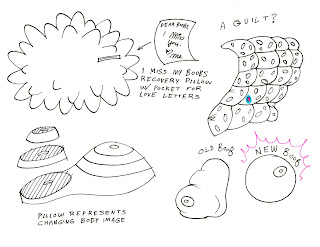 DEAR BOOBS
I Miss
you.
♥ me
A QUILT?
I MISS MY BOOBS
RECOVERY PILLOW
W/ POCKET FOR
LOVE LETTERS
OLD BOOB
NEW BOOB
PILLOW REPRESENTS
CHANGING BODY IMAGE